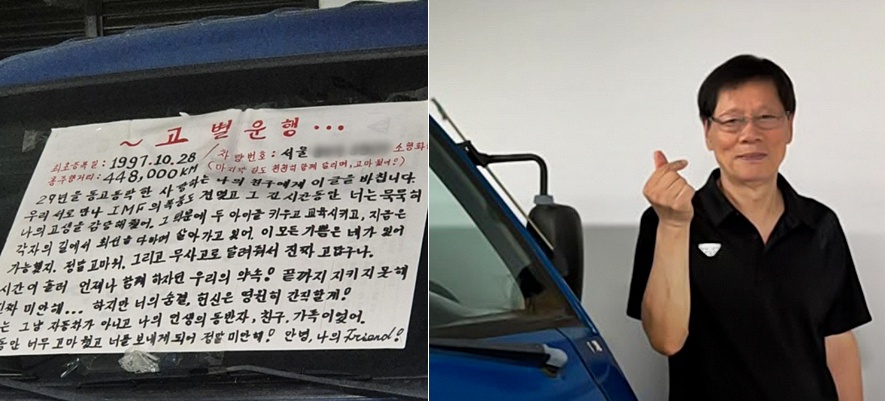 ~ 고 별 운 행 ...
최초등록일 : 1997.10.28 / 차량번호 : 서울 소형화
총주행거리 : 448,000KM (마지막 길도 천천히 함께 달리며, 고마웠어?)
29년을 동고동락한 사랑하는 나의 친구에게 이 글을 바칩니다.
우리 서로 만나 IMF의 폭풍도 견뎠고 그 긴 시간동안 너는 묵묵히
나의 고생을 감당해줬어. 그 덕분에 두 아이를 키우고 교육시키고, 지금은
각자의 길에서 최선을 다하며 살아가고 있어. 이 모든 기쁨은 네가 있어
가능했지. 정말 고마워. 그리고 무사고로 달려줘서 진짜 고맙구나.
시간이 흘러 언제나 함께 하자던 우리의 약속! 끝까지 지키지 못해
진짜 미안해... 하지만 너의 숨결, 헌신은 영원히 간직할게!
는 그냥 자동차가 아니고 나의 인생의 동반자, 친구, 가족이었어.
동안 너무 고마웠고 너를 보내게 되어 정말 미안해! 안녕, 나의 Friend!